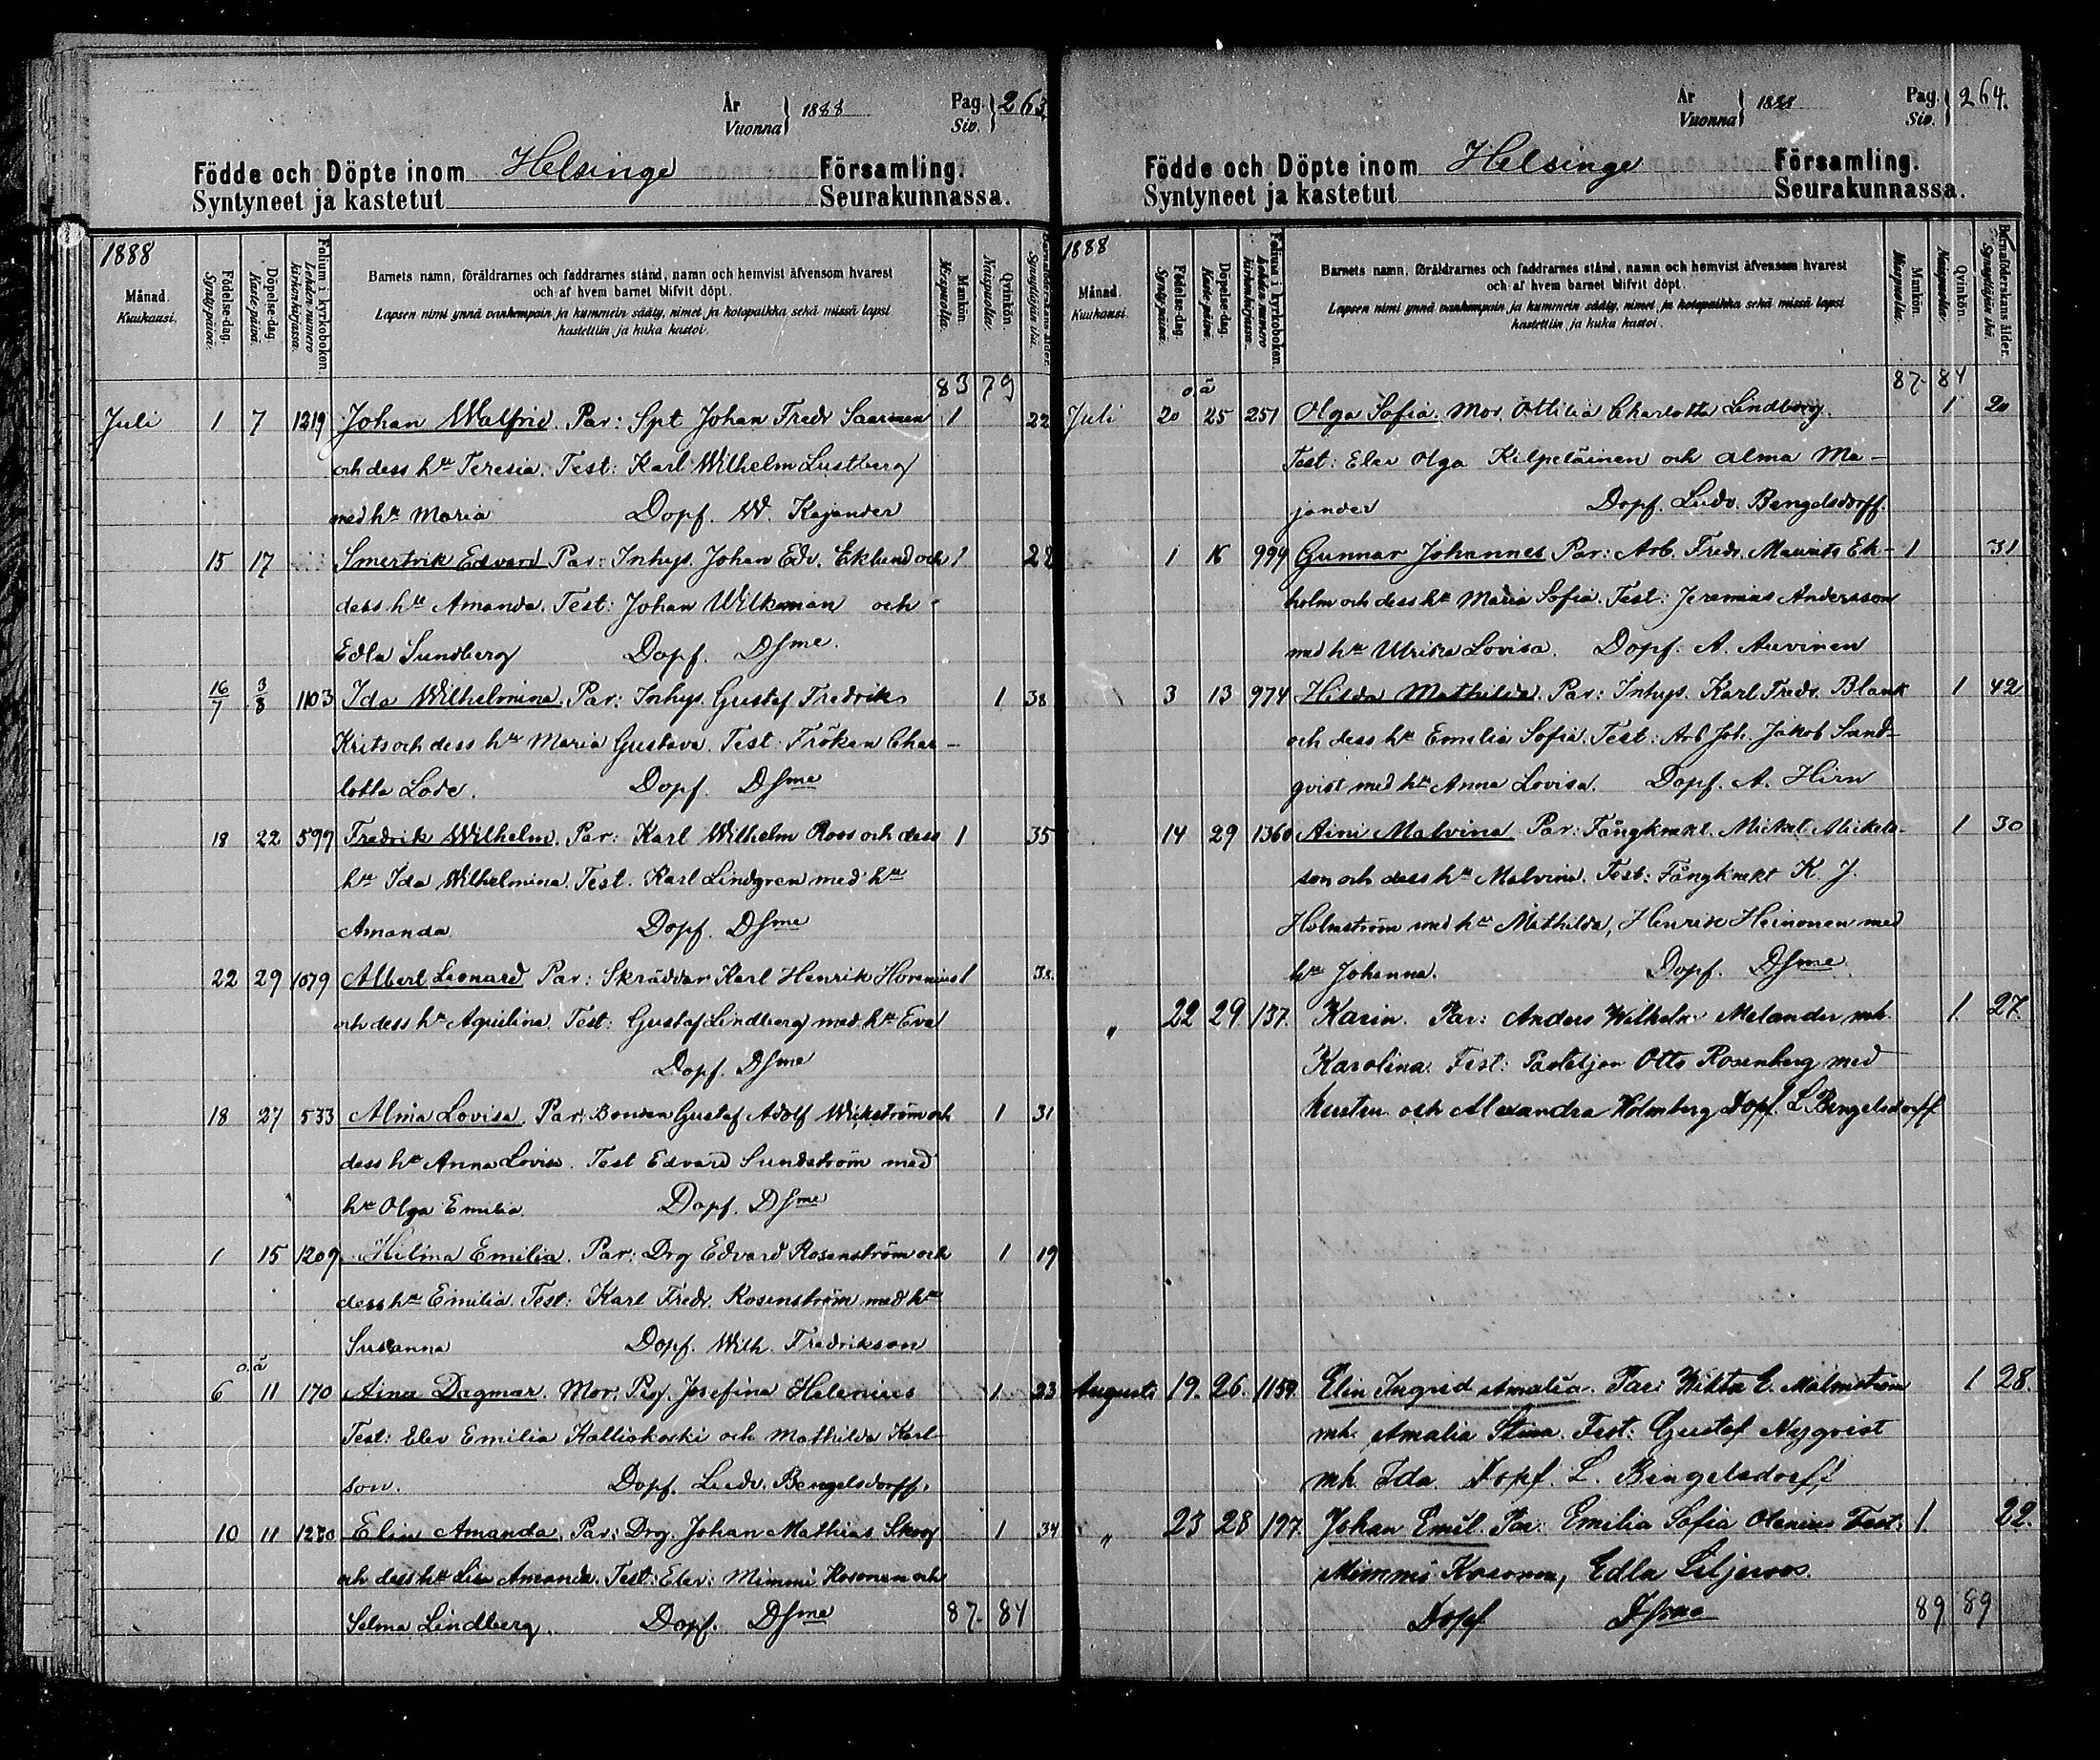 År
Vuonna } 1888 Pag. Siv. } 263.
Födde och Döpte inom Helsinge Församling.
Syntyneet ja kastetut Seurakunnassa.
1888
Månad. Kuukausi.
Födelse-dag. Syntypäivä.
Döpelse-dag. Kastepäivä.
Folium i kyrkoboken. Lehden numero kirkonkirjassa.
Barnets namn, föräldrarnes och faddrarnes stånd, namn och hemvist äfvensom hvarest
och af hvem barnet blifvit döpt.
Lapsen nimi ynnä vanhempain ja kummein sääty, nimet ja kotopaikka sekä missä lapsi
kastettiin ja kuka kastoi.
Mankön. Miespuolta.
Qvinkön. Naispuolta.
Barnaföderskans ålder. Synnyttäjän ikä.
83 79
Juli 1 7 1219 Johan Walfrid. Par: Spt Johan Fredr Saarinen 1 22
och dess hu Teresia. Test: Karl Wilhelm Lustberg
med hu Maria Dopf. W. Kajander
15 17 Edvard Par: Inhys. Johan Edv. Eklund och 1 28
dess hu Amanda. Test: Johan Wilkman och
Edla Sundberg Dopf. DSme.
16/7 3/8 1103 Ida Wilhelmina. Par: Inhys. Gustaf Fredrik 1 38
Krits och dess hu Maria Gustava. Test: Fröken Char-
lotta Lode. Dopf. DSme
18 22 599 Fredrik Wilhelm. Par: Karl Wilhelm Roos och dess 1 35
hu Ida Wilhelmina. Test. Karl Lindgren med hu
Amanda Dopf. DSme
22 29 1079 Albert Leonard Par: Skräddar Karl Henrik Horenius 1 38
och dess hu Aqvilina. Test: Gustaf Lindberg med hu Eva
Dopf. DSme
18 27 533 Alma Lovisa. Par: Bonden Gustaf Adolf Wickström och 1 31
dess hu Anna Lovisa. Test Edvard Sundström med
hu Olga Emilia. Dopf. DSme
1 15 1209 Hilma Emilia. Par: Drg Edvard Rosenström och 1 19
dess hu Emilia. Test: Karl Fredr. Rosenström med hu
Susanna Dopf. Wilh. Fredrikson
o. ä
6 11 170 Aina Dagmar. Mor: Pig. Josefina Helenius 1 23
Test: Elev Emilia Kalliokoski och Mathilda Karl-
son. Dopf. Ludv. Bengelsdorff.
10 11 1230 Elin Amanda. Par: Drg. Johan Mathias Skog 1 34
och dess hu Lisa Amanda. Test: Elev: Mimmi Kosonen och
Selma Lindberg. Dopf. DSme 87 84
År
Vuonna } 1888 Pag. Siv. } 264.
Födde och Döpte inom Helsinge Församling.
Syntyneet ja kastetut Seurakunnassa.
1888
Månad. Kuukausi.
Födelse-dag. Syntypäivä.
Döpelse-dag. Kastepäivä.
Folium i kyrkoboken. Lehden numero kirkonkirjassa.
Barnets namn, föräldrarnes och faddrarnes stånd, namn och hemvist äfvensom hvarest
och af hvem barnet blifvit döpt.
Lapsen nimi ynnä vanhempain ja kummein sääty, nimet ja kotopaikka sekä missä lapsi
kastettiin ja kuka kastoi.
Mankön. Miespuolta.
Qvinkön. Naispuolta.
Barnaföderskans ålder. Synnyttäjän ikä.
o. ä 87 84
Juli 20 25 251 Olga Sofia. Mor. Ottilia Charlotta Lindborg. 1 20
Test: Elev Olga Kilpeläinen och Alma Ma-
jander Dopf. Ludv. Bengelsdorff.
1 16 994 Gunnar Johannes Par: Arb. Fredr. Maurits Ek- 1 31
holm och dess hu Maria Sofia. Test: Jeremias Andersson
med hu Ulrika Lovisa. Dopf. A. Auvinen
3 13 974 Hilda Mathilda. Par: Inhys. Karl Fredr. Blank 1 42
och dess hu Emelia Sofia. Test: Arb Joh. Jakob Sand-
qvist med hu Anna Lovisa. Dopf. A. Hirn
14 29 1360 Aini Malvina Par: Fångknekt. Mickel Mickels- 1 30
son och dess hu Malvina. Test: Fångknekt K. J.
Holmström med hu Mathilda, Henrik Heinonen med
hu Johanna. Dopf. DSme
" 22 29 137. Karin. Par: Anders Wilhelm Melander mh. 1. 27.
Karolina. Test: Otto Rosenberg med
hustru och Alexandra Holmberg Dopf. L Bengelsdorff
Augusti 19. 26. 1159. Elin Ingrid Amalia. Par: Viktor E. Malmström 1. 28.
mh. Amalia Stina. Test: Gustaf Nyqvist
mh. Ida. Dopf. L. Bengelsdorff
" 23 28 197 Johan Emil. Par: Emilia Sofia Olenius Test: 1. 22.
Mimmi Kosonen, Edla Liljeroos.
Dopf DSme 89 89